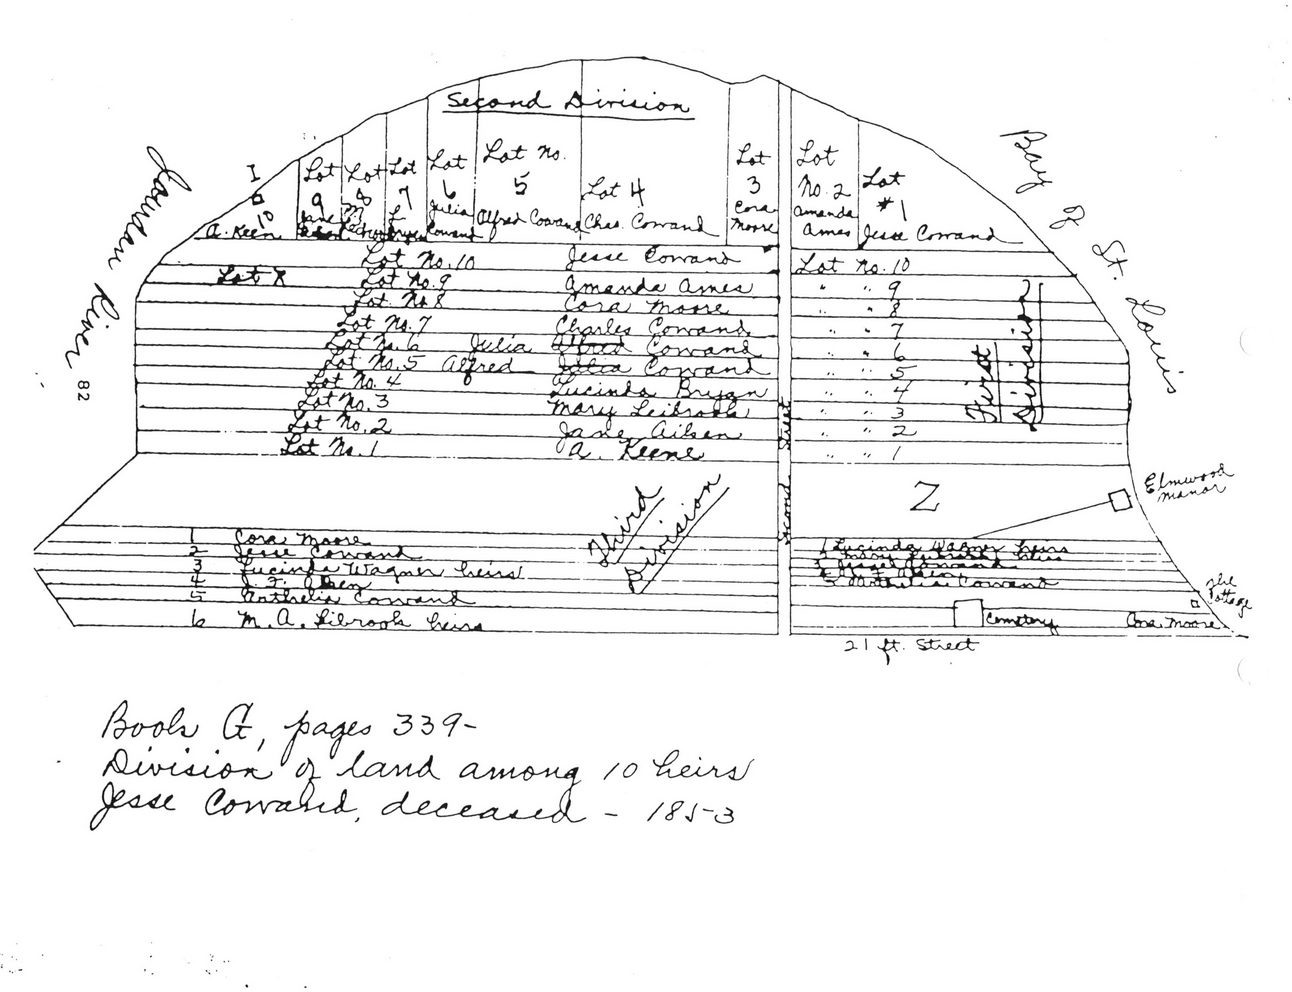 Second Division
Bay of St. Louis
Jourdan River
82
Lot 10 A. Keen
Lot 9 Jane
Lot 8 M.
Lot 7 L.
Lot 6 Julia Cowand
Lot No. 5 Alfred Cowand
Lot 4 Chas. Cowand
Lot 3 Cora Moore
Lot No. 2 Amanda Ames
Lot #1 Jesse Cowand
Lot No. 10 Jesse Cowand
Lot X
Lot No. 9 Amanda Ames
Lot No. 8 Cora Moore
Lot No. 7 Charles Cowand
Lot No. 6 Julia Alfred Cowand
Lot No. 5 Alfred Julia Cowand
Lot No. 4 Lucinda Bryan
Lot No. 3 Mary Leibrook
Lot No. 2 Jane Aiken
Lot No. 1 A. Keene
Lot No. 10
" " 9
" " 8
" " 7
" " 6
" " 5
" " 4
" " 3
" " 2
" " 1
First Division
Second Street
Z
Elmwood Manor
Third Division
1 Cora Moore
2 Jesse Cowand
3 Lucinda Wagner heirs
4 J. F.
5 Arthelia Cowand
6 M. A. Librook heirs
1 Lucinda Wagner heirs
2 Mary heirs
3 Jesse Cowand
5 Arthelia Cowand
The Cottage
Cemetery
Cora Moore
21 ft. Street
Book G, pages 339-
Division of land among 10 heirs
Jesse Cowand, deceased - 1853